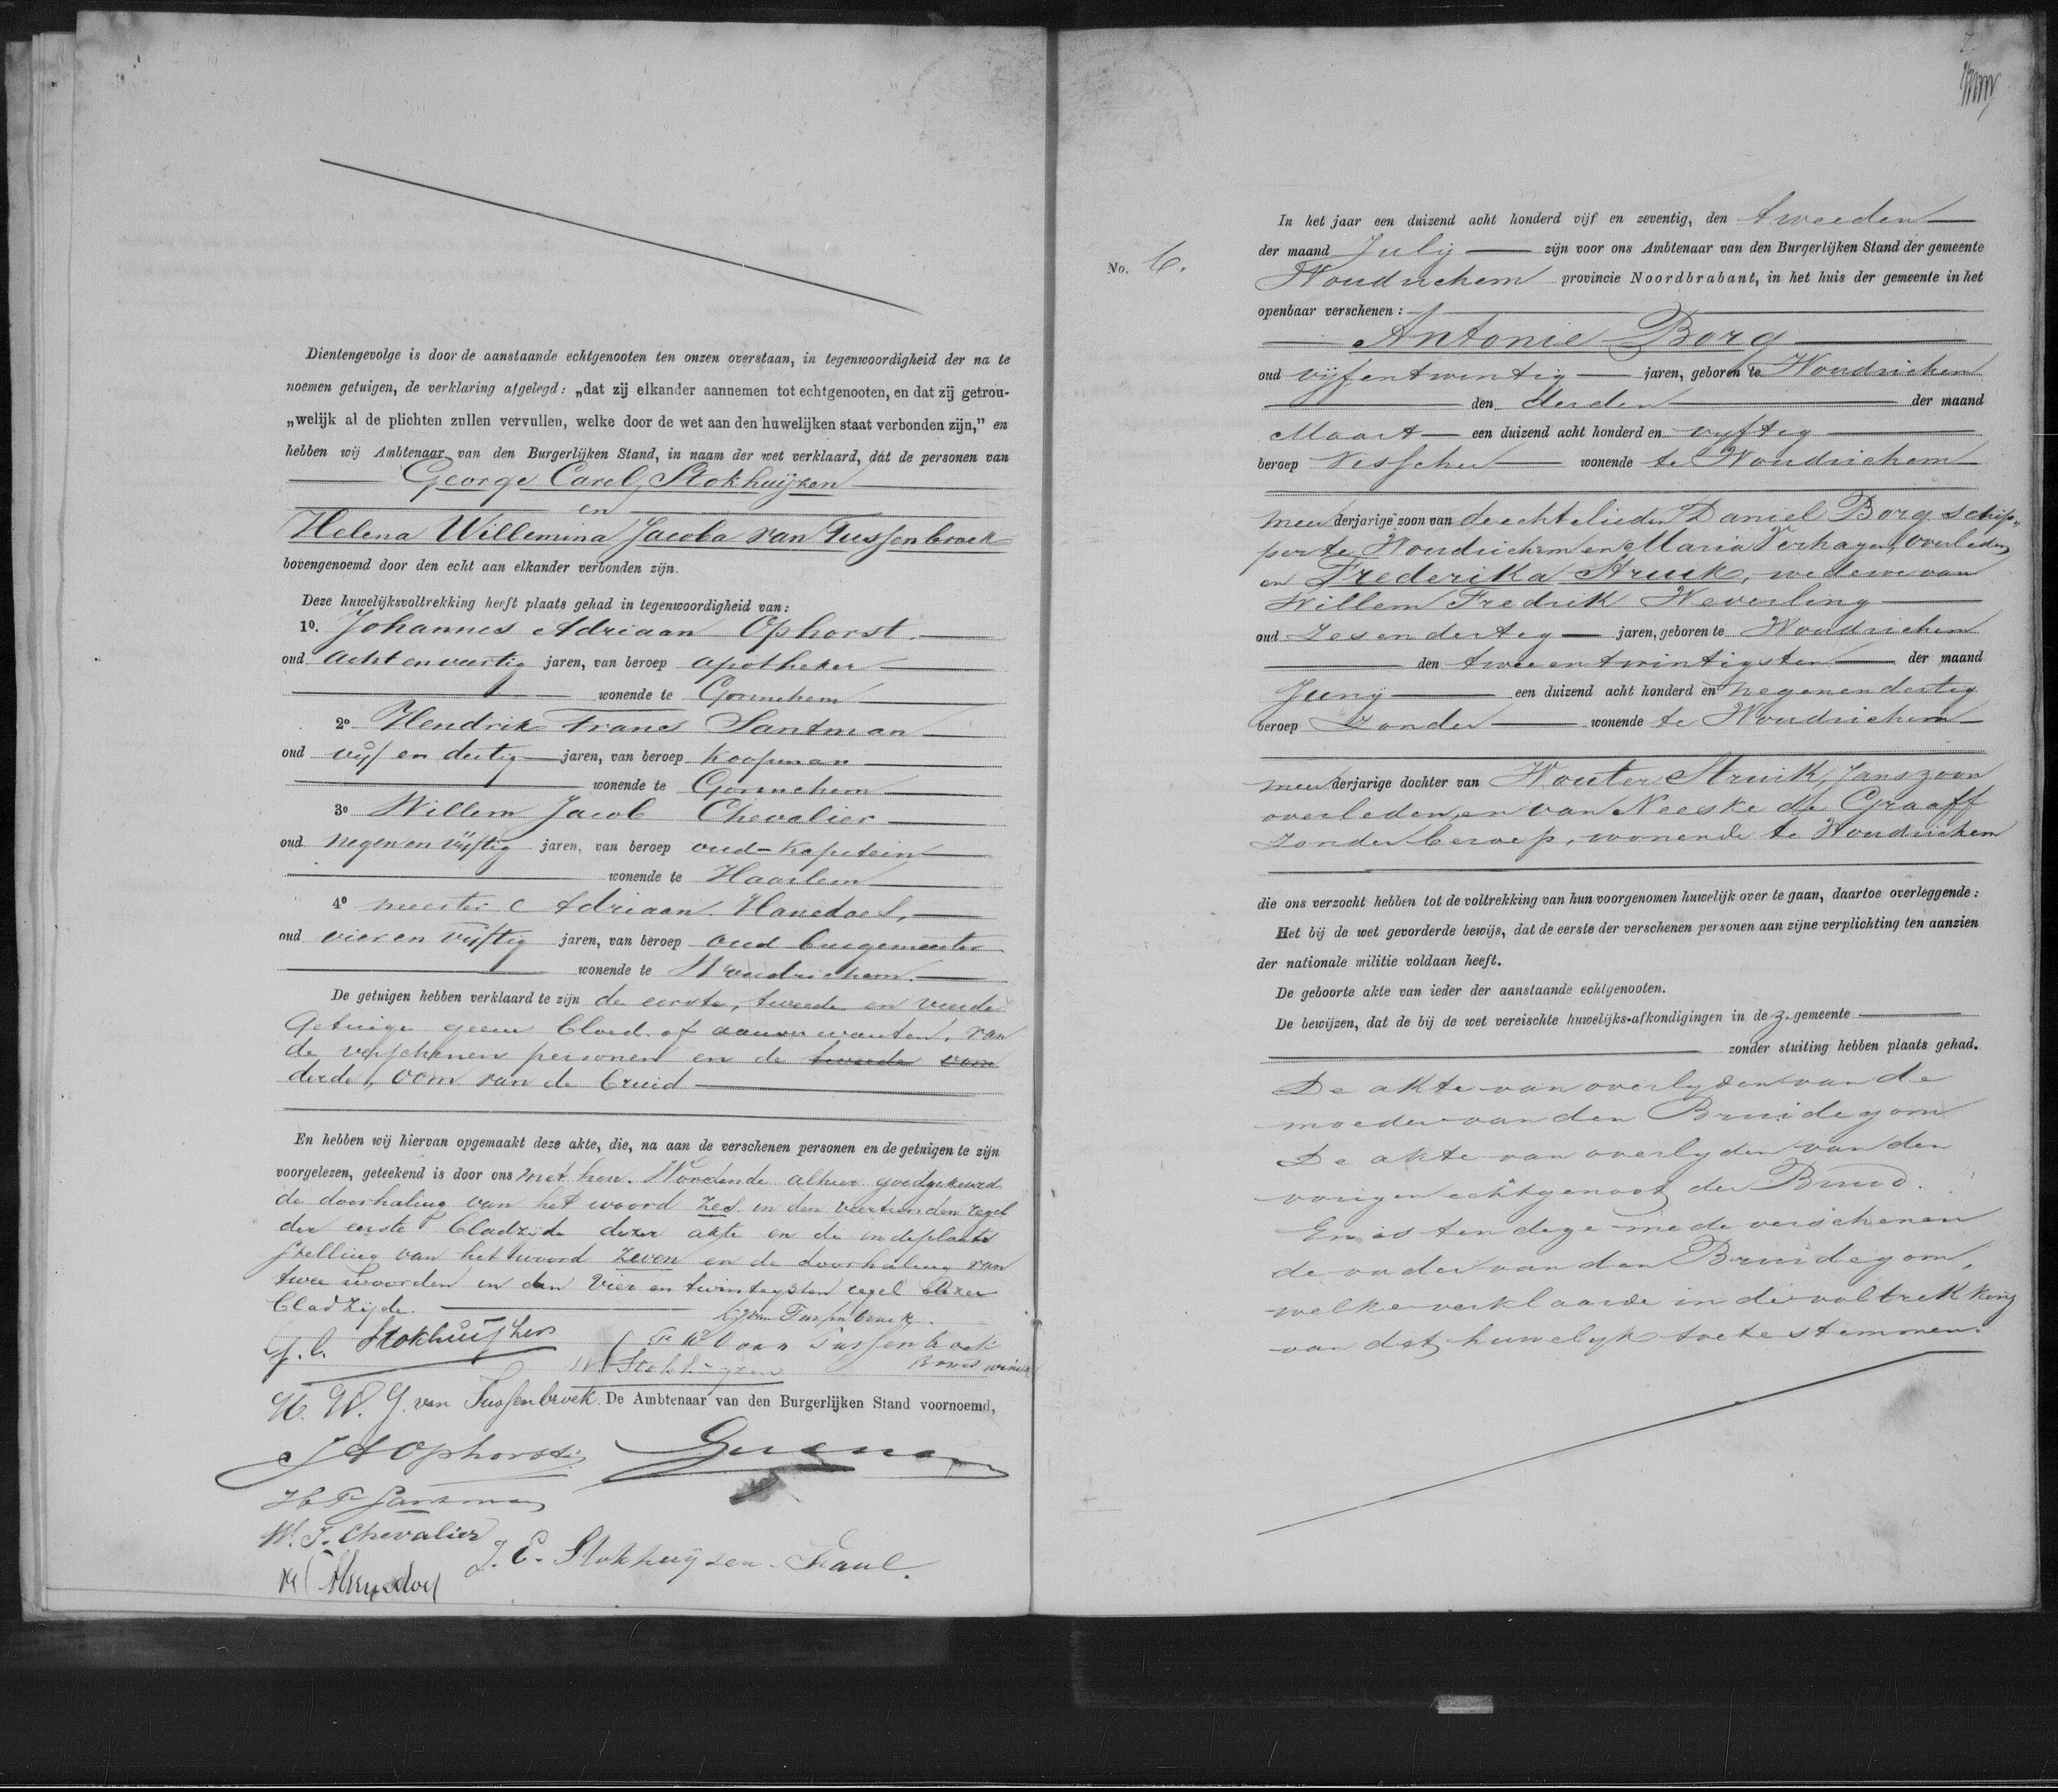 Dientengevolge is door de aanstaande echtgenooten ten onzen overstaan, in tegenwoordigheid der na te
noemen getuigen, de verklaring afgelegd: „dat zij elkander aannemen tot echtgenooten, en dat zij getrou-
„welijk al de plichten zullen vervullen, welke door de wet aan den huwelijken staat verbonden zijn,” en
hebben wij Ambtenaar van den Burgerlijken Stand, in naam der wet verklaard, dat de personen van
George Carel Stokhuijzen
en
Helena Willemina Jacoba van Tussenbroek
bovengenoemd door den echt aan elkander verbonden zijn.
Deze huwelijksvoltrekking heeft plaats gehad in tegenwoordigheid van:
1º. Johannes Adriaan Ophorst.
oud acht en veertig jaren, van beroep apotheker
wonende te Gorinchem
2º Hendrik Frans Santman
oud vijf en dertig jaren, van beroep koopman
wonende te Gorinchem
3º Willem Jacob Chevalier
oud negen en vijftig jaren, van beroep oud-kapitein
wonende te Haarlem
4º meester Adriaan Hanedoes,
oud vier en vijftig jaren, van beroep oud burgemeester
wonende te Woudrichem.
De getuigen hebben verklaard te zijn de eerste, tweede en vierde
Getuige geene bloed- of aanverwanten, van
de verschenen personen en de tweede oom
derde, oom van de bruid
En hebben wij hiervan opgemaakt deze akte, die, na aan de verschenen personen en de getuigen te zijn
voorgelezen, geteekend is door ons met hen. Wordende alhier goedgekeurd
de doorhaling van het woord zes in den veertienden regel
der eerste bladzijde dezer akte en de indeplaats
stelling van het woord zeven en de doorhaling van
twee woorden in den vier en twintigsten regel dezer
bladzijde.
van Tussenbroek.
G. C. Stokhuijzen
van Tussenbroek
Stokhuyzen
H. W. J. van Tussenbroek. De Ambtenaar van den Burgerlijken Stand voornoemd,
J A Ophorst
H. F. Santman
W. J. Chevalier
J. E. Stokhuyzen-Paul.
Hanedoes
No. 6.
In het jaar een duizend acht honderd vijf en zeventig, den tweeden
der maand July zijn voor ons Ambtenaar van den Burgerlijken Stand der gemeente
Woudrichem provincie Noordbrabant, in het huis der gemeente in het
openbaar verschenen:
Antonie Borg
oud vijfentwintig jaren, geboren te Woudrichem
den derden der maand
Maart een duizend acht honderd en vijftig
beroep Visscher wonende te Woudrichem
meerderjarige zoon van de echtelieden Daniel Borg schip„
per te Woudrichem en Maria Verhagen, overleden
en Frederika Struik, weduwe van
Willem Fredrik Weverling
oud zesendertig jaren, geboren te Woudrichem
den tweeentwintigsten der maand
Junij een duizend acht honderd en negenendertig
beroep Zonder wonende te Woudrichem
meerderjarige dochter van Wouter Struik, Janszoon
overleden, en van Neeske de Graaff
zonder beroep, wonende te Woudrichem
die ons verzocht hebben tot de voltrekking van hun voorgenomen huwelijk over te gaan, daartoe overleggende:
Het bij de wet gevorderde bewijs, dat de eerste der verschenen personen aan zijne verplichting ten aanzien
der nationale militie voldaan heeft.
De geboorte akte van ieder der aanstaande echtgenooten.
De bewijzen, dat de bij de wet vereischte huwelijks-afkondigingen in deze gemeente
zonder stuiting hebben plaats gehad.
De akte van overlyden van de
moeder van den Bruidegom
De akte van overlyden van den
vorigen echtgenoot der Bruid.
En is ten deze mede verschenen
de vader van den Bruidegom,
welke verklaarde in de voltrekking
van dat huwelyk toetestemmen.